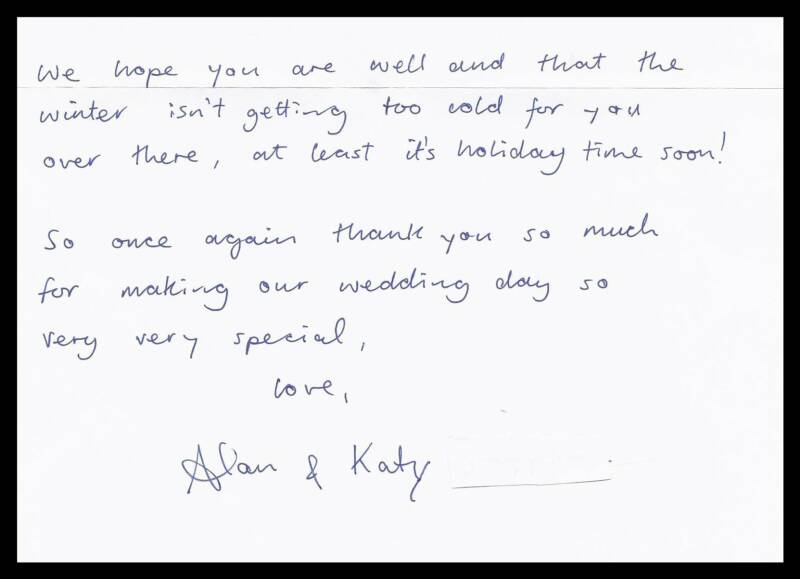 We hope you are well and that the
winter isn't getting too cold for you
over there, at least it's holiday time soon!
So once again thank you so much
for making our wedding day so
very very special,
love,
Alan & Katy